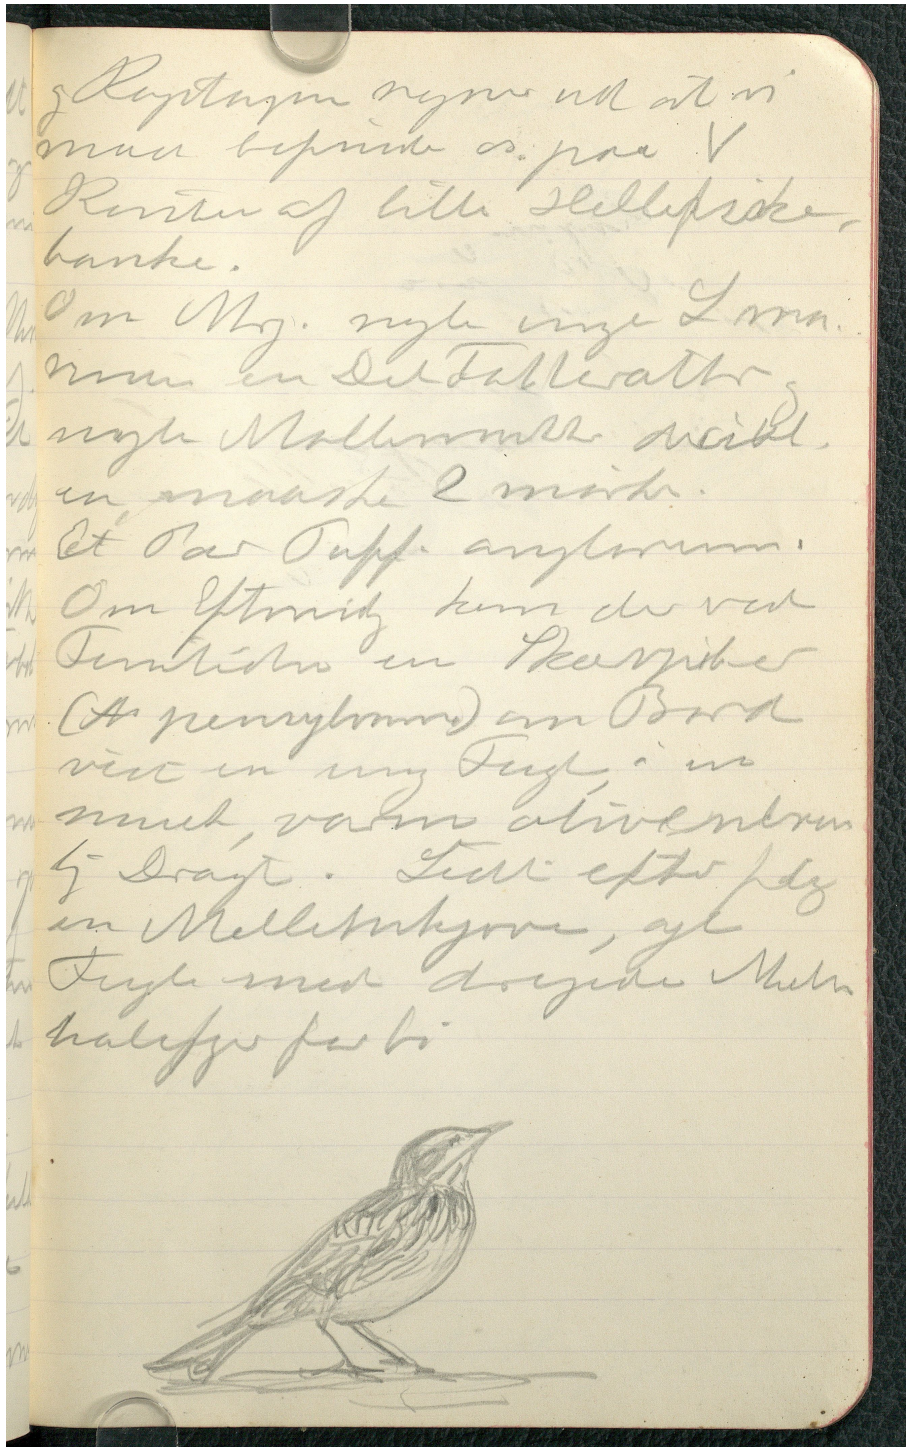 og Kaptajnen regner ud at vi
maa befinde os paa V
Kanten af lille Hellefiske-
banke.
Om Mrg. nogle unge L. ma-
rinus en Del Tatteratter og
nogle Mallemukker
en, maaske 2 mørke.
Et Par Puff. anglorum.
Om Eftmidg kom der ved
Timetiden en Skærpiber
(A. pensylvanic) om Bord
vist en ung Fugl, i en
smuk, varm olivenbrun-
lig Dragt. Lidt efter
en Mellemkjove, ogl
Fugle med drejede Midt
halefjer forbi